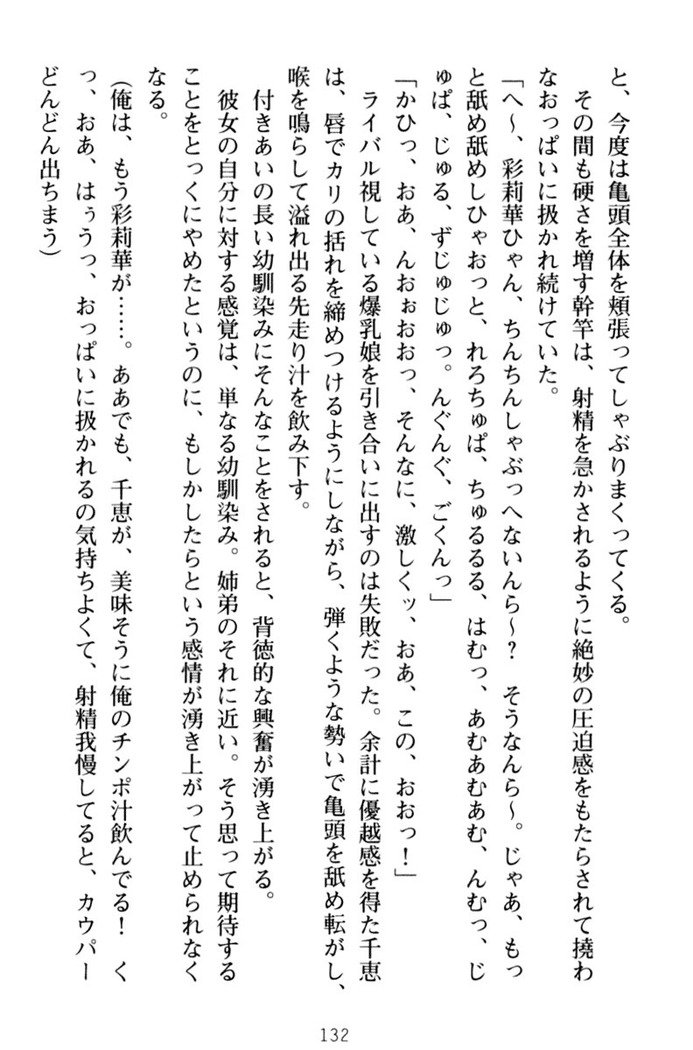 と、今度は亀頭全体を頬張ってしゃぶりまくってくる。
その間も硬さを増す幹竿は、射精を急かされるように絶妙の圧迫感をもたらされて撓わ
なおっぱいに扱かれ続けていた。
「へ～、彩莉華ひゃん、ちんちんしゃぶっへないんら～？　そうなんら～。じゃあ、もっ
と舐め舐めしひゃおっと、れろちゅぱ、ちゅるるる、はむっ、あむあむあむ、んむっ、じ
ゅぱ、じゅる、ずじゅじゅっ。んぐんぐ、ごくんっ」
「かひっ、おあ、んおぉおおっ、そんなに、激しくッ、おあ、この、おおっ！」
ライバル視している爆乳娘を引き合いに出すのは失敗だった。余計に優越感を得た千恵
は、唇でカリの括れを締めつけるようにしながら、弾くような勢いで亀頭を舐め転がし、
喉を鳴らして溢れ出る先走り汁を飲み下す。
付きあいの長い幼馴染みにそんなことをされると、背徳的な興奮が湧き上がる。
彼女の自分に対する感覚は、単なる幼馴染み。姉弟のそれに近い。そう思って期待する
ことをとっくにやめたというのに、もしかしたらという感情が湧き上がって止められなく
なる。
（俺は、もう彩莉華が……。ああでも、千恵が、美味そうに俺のチンポ汁飲んでる！　く
っ、おあ、はぅうっ、おっぱいに扱かれるの気持ちよくて、射精我慢してると、カウパー
どんどん出ちまう）
132